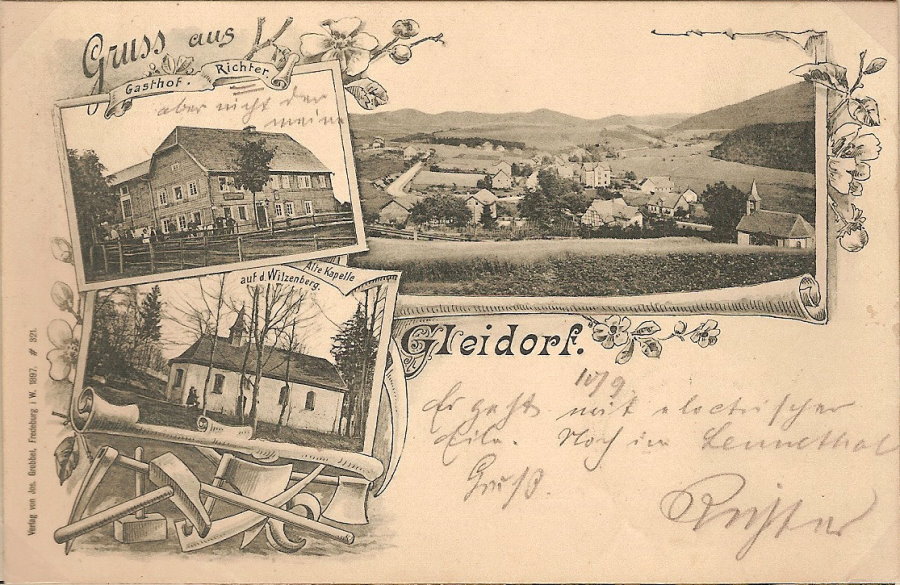 Gruss aus
Gasthof. Richter.
aber nicht der
meine
Alte Kapelle
auf d. Wilzenberg.
Gleidorf.
10/9.
Es geht mit electrischer
Eile. Noch im Lennethal
Gruß.
Richter
Verlag von Jos. Grobbel, Fredeburg i. W. 1897. # 321.